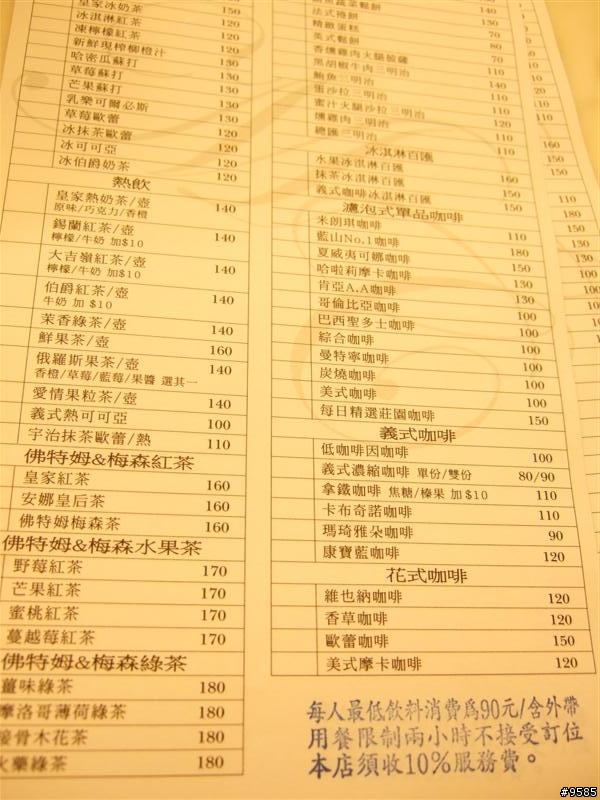 皇家冰奶茶 150
冰淇淋紅茶 130
凍檸檬紅茶 130
新鮮現榨柳橙汁 130
哈密瓜蘇打 130
草莓蘇打 130
芒果蘇打 130
乳樂可爾必斯 130
草莓歐蕾 120
冰抹茶歐蕾 120
冰可可亞 120
冰伯爵奶茶 120
熱飲
皇家熱奶茶/壺 140
原味/巧克力/香橙
錫蘭紅茶/壺 140
檸檬/牛奶 加$10
大吉嶺紅茶/壺 140
檸檬/牛奶 加$10
伯爵紅茶/壺 140
牛奶 加 $10
茉香綠茶/壺 140
鮮果茶/壺 160
俄羅斯果茶/壺 140
香橙/草莓/藍莓/果醬 選其一
愛情果粒茶/壺 140
義式熱可可亞 100
宇治抹茶歐蕾/熱 110
佛特姆&梅森紅茶
皇家紅茶 160
安娜皇后茶 160
佛特姆梅森茶 160
佛特姆&梅森水果茶
野莓紅茶 170
芒果紅茶 170
蜜桃紅茶 170
蔓越莓紅茶 170
佛特姆&梅森綠茶
薑味綠茶 180
摩洛哥薄荷綠茶 180
接骨木花茶 180
火藥綠茶 180
蔬菜鬆餅 140
法式捲餅
精緻蛋糕 70
美式鬆餅 80
香燻雞肉火腿披薩
黑胡椒牛肉三明治
鮪魚三明治
蛋沙拉三明治
蜜汁火腿沙拉三明治
燻雞肉三明治
總匯三明治
冰淇淋百匯
水果冰淇淋百匯 160
抹茶冰淇淋百匯 150
義式咖啡冰淇淋百匯 150
濾泡式單品咖啡
米朗琪咖啡 110
藍山No.1咖啡 180
夏威夷可娜咖啡 150
哈啦莉摩卡咖啡 130
肯亞A.A咖啡 130
哥倫比亞咖啡 100
巴西聖多士咖啡 100
綜合咖啡 100
曼特寧咖啡 100
炭燒咖啡 100
美式咖啡 100
每日精選莊園咖啡 150
義式咖啡
低咖啡因咖啡 100
義式濃縮咖啡 單份/雙份 80/90
拿鐵咖啡 焦糖/榛果 加$10 110
卡布奇諾咖啡 110
瑪琦雅朵咖啡 90
康寶藍咖啡 120
花式咖啡
維也納咖啡 120
香草咖啡 120
歐蕾咖啡 150
美式摩卡咖啡 120
每人最低飲料消費爲90元/含外帶
用餐限制兩小時不接受訂位
本店須收10%服務費。
#9585